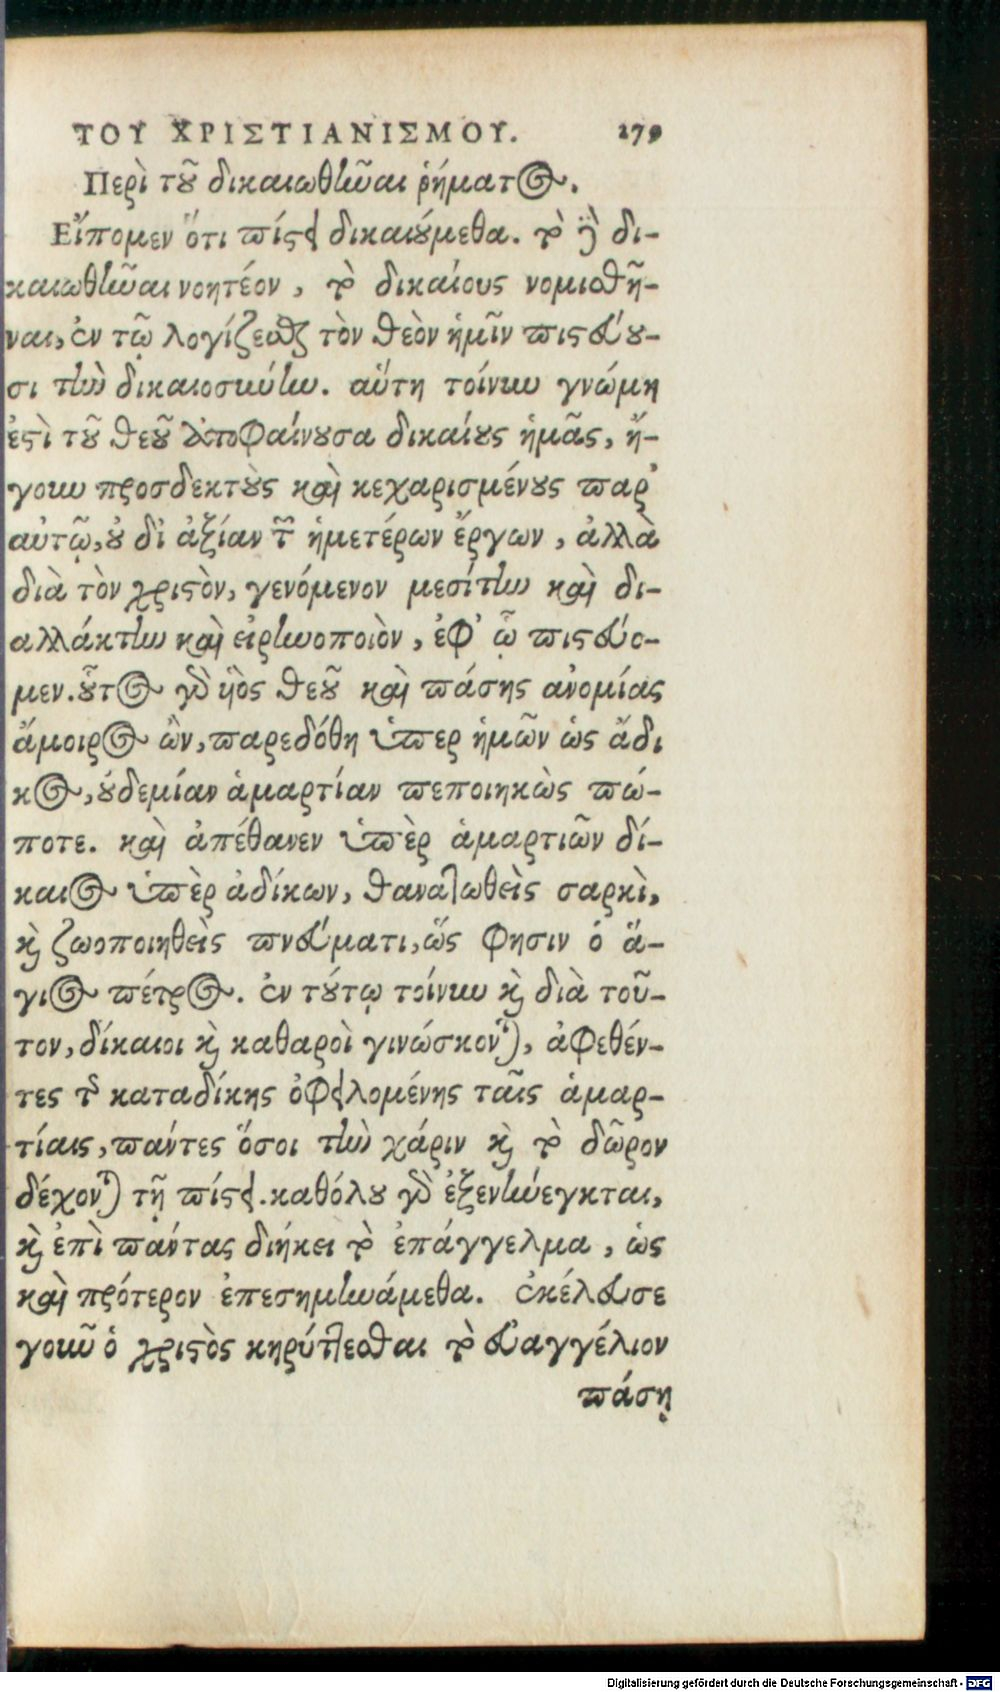 ΤΟΥ ΧΡΙΣΤΙΑΝΙΣΜΟΥ. 279
Περὶ τοῦ δικαιωθῆναι ῥήματος.
Εἴπομεν ὅτι πίστει δικαιούμεθα. τὸ δὲ δι-
καιωθῆναι νοητέον, τὸ δικαίους νομισθῆ-
ναι, ἐν τῷ λογίζεσθαι τὸν θεὸν ἡμῖν πιστεύου-
σι τὴν δικαιοσύνην. αὕτη τοίνυν γνώμη
ἐστὶ τοῦ θεοῦ ἀποφαίνουσα δικαίους ἡμᾶς, ἤ-
γουν προσδεκτοὺς καὶ κεχαρισμένους παρ'
αὐτῷ, οὐ δι' ἀξίαν τῶν ἡμετέρων ἔργων, ἀλλὰ
διὰ τὸν χριστὸν, γενόμενον μεσίτην καὶ δι-
αλλάκτην καὶ εἰρηνοποιὸν, ἐφ' ᾧ πιστεύο-
μεν. οὗτος γὰρ ὑιὸς θεοῦ καὶ πάσης ἀνομίας
ἄμοιρος ὢν, παρεδόθη ὑπερ ἡμῶν ὡς ἄδι
κος, οὐδεμίαν ἁμαρτίαν πεποιηκὼς πώ-
ποτε. καὶ ἀπέθανεν ὑπὲρ ἁμαρτιῶν δί-
καιος ὑπὲρ ἀδίκων, θανατωθεὶς σαρκὶ,
καὶ ζωοποιηθεὶς πνεύματι, ὥς φησιν ὁ ἅ-
γιος πέτρος. ἐν τούτῳ τοίνυν καὶ διὰ τοῦ-
τον, δίκαιοι καὶ καθαροὶ γινώσκονται, ἀφεθέν-
τες τῆς καταδίκης ὀφειλομένης ταῖς ἁμαρ-
τίαις, πάντες ὅσοι τὴν χάριν καὶ τὸ δῶρον
δέχονται τῇ πίστει. καθόλου γὰρ ἐξενήνεγκται,
καὶ ἐπὶ πάντας διήκει τὸ ἐπάγγελμα, ὡς
καὶ πρότερον ἐπεσημηνάμεθα. ἐκέλευσε
γοῦν ὁ χριστὸς κηρύττεσθαι τὸ εὐαγγέλιον
πάσῃ
Digitalisierung gefördert durch die Deutsche Forschungsgemeinschaft - DFG